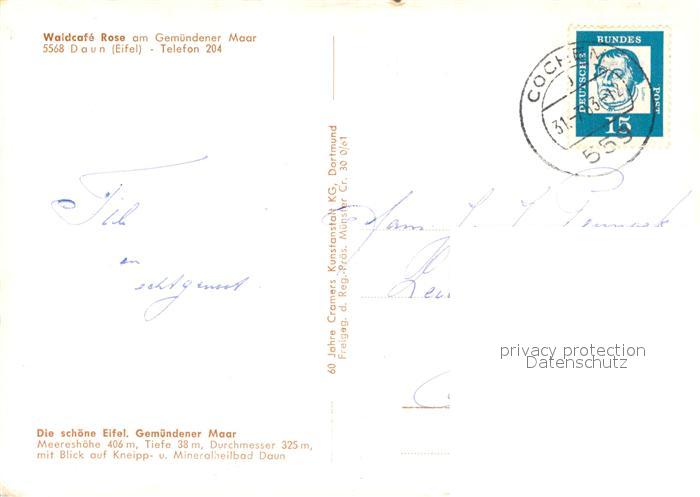 Waldcafé Rose am Gemündener Maar
5568 Daun (Eifel) - Telefon 204
DEUTSCHE BUNDES POST
15
COCHEM
559
60 Jahre Cramers Kunstanstalt KG, Dortmund
Freigeg. d. Reg.-Präs. Münster Cr. 30 0/61
en
echtgenoot.
privacy protection
Datenschutz
Die schöne Eifel. Gemündener Maar
Meereshöhe 406 m, Tiefe 38 m, Durchmesser 325 m,
mit Blick auf Kneipp- u. Mineralheilbad Daun